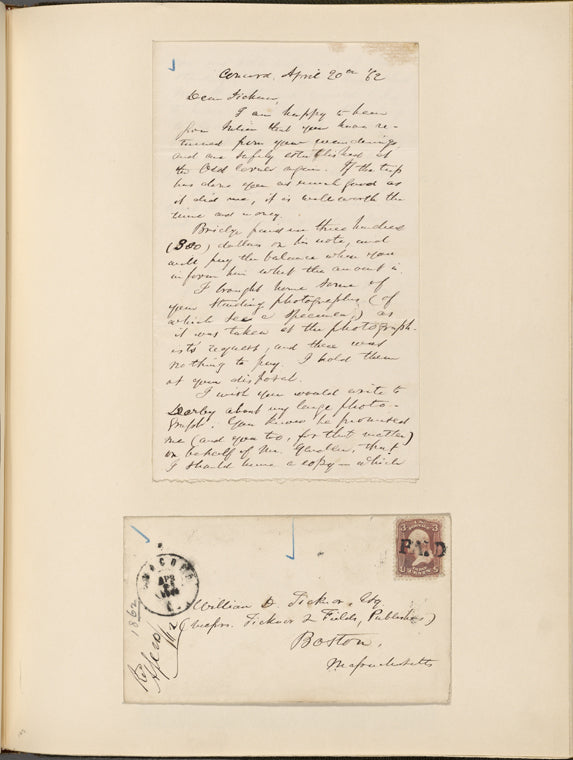 Concord, April 20th '62
Dear Ticknor,
I am happy to hear
from Julian that you have re-
turned from your wanderings
and are safely established at
the Old Corner again. If the trip
has done you as much good as
it did me, it is well worth the
time and money.
Bridge paid in three hundred
(300) dollars on his note, and
will pay the balance when you
inform him what the amount is.
I brought home some of
your standing photographs (of
which see a specimen,) as
it was taken at the photograph-
ist's request, and there was
nothing to pay. I hold them
at your disposal.
I wish you would write to
about my large photo-
graph. You know he promised
me (and you too, for that matter)
on behalf of Mr. Gardner, that
I should have a copy—which
3 3
PAID
CONCORD
APR
William D. Ticknor, Esq
(Messrs. Ticknor & Fields, Publishers)
Boston,
Massachusetts
1862